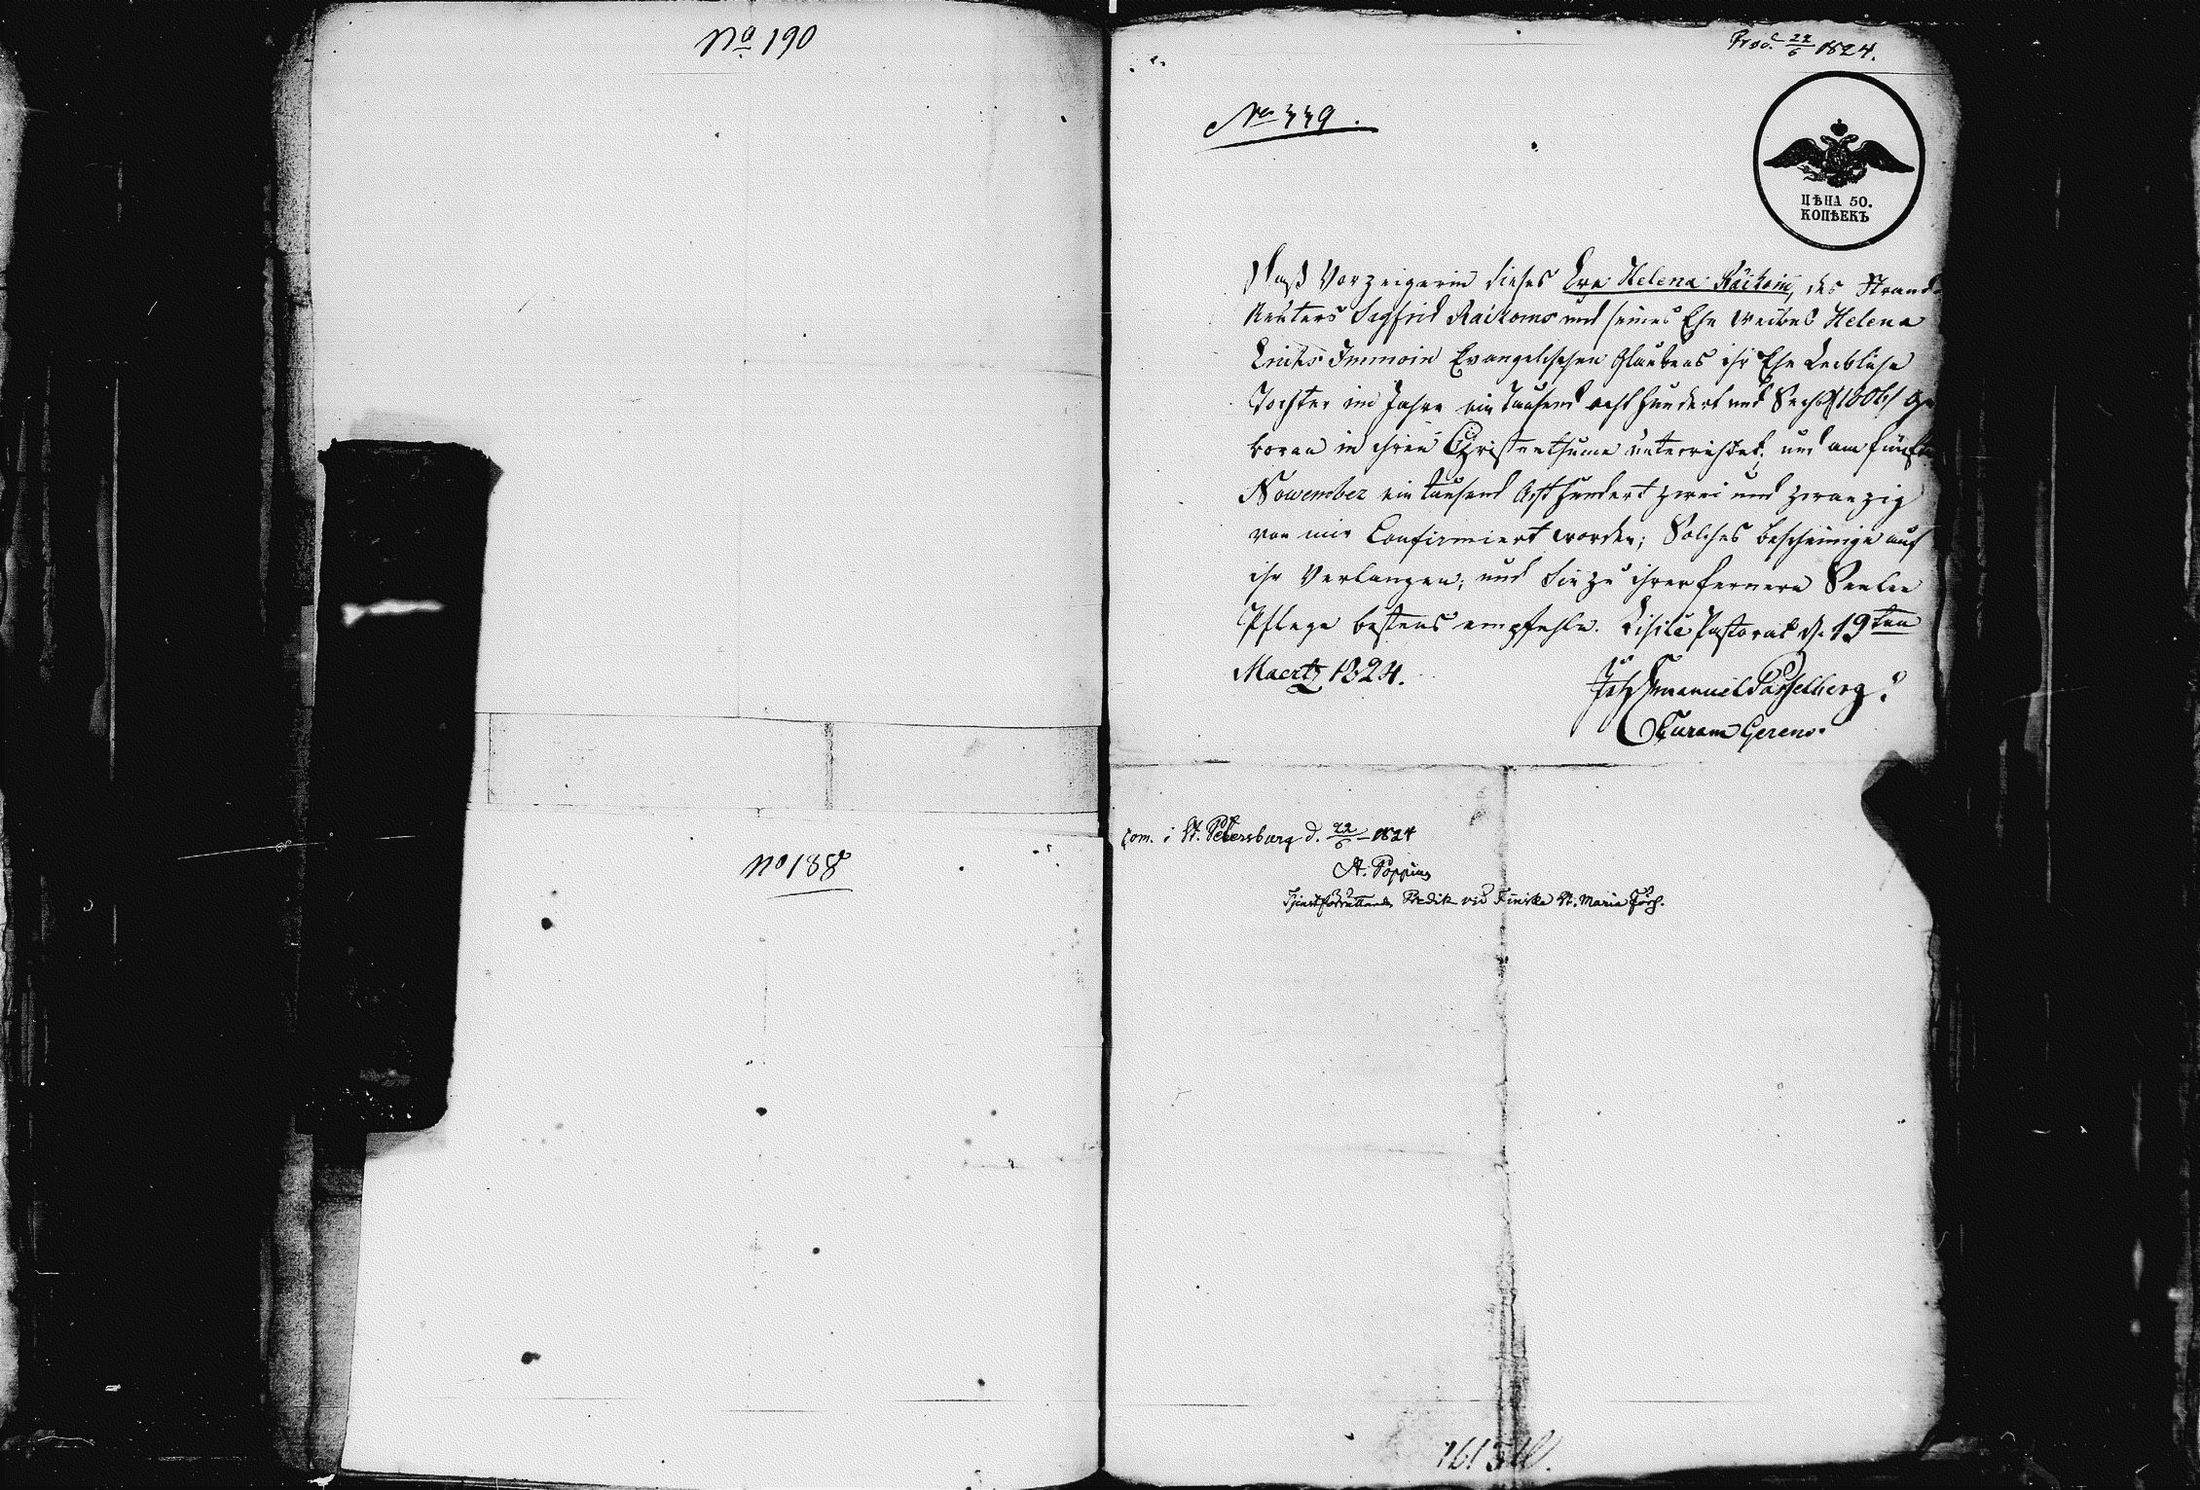 No 190
No 188
Prod. 22/6 1824.
No 339.
ЦѢНА 50.
КОПѢЕКЪ
Daß Vorzeigerin dieses Eva Helena Räikoin, des Strand-
Reuters Sigfrid Raikoms und seines Ehe Weibes Helena
Immoin Evangelischen Glaubens ihr Ehe Leibliche
Tochter im Jahre ein Tausend acht hundert und Sechs /1806/ Ge
boren in ihren Christenthume unterrichtet, und am fünften
November ein tausend Acht hundert zwei und zwanzig
von mir Confirmiert worden; Solches bescheinige auf
ihr Verlangen; und Sie zu ihrer fernern Seelen
Pflege bestens empfehle. Lisilä Pastorat d. 19ten
Maertz 1824.
Joh. Emanuel Passelberg.
Curam Gerens.
Kom. i St. Petersburg d. 22/6 1824
A. Poppius
Tjenstförrättande Predik. vid Finska St. Maria Förs.